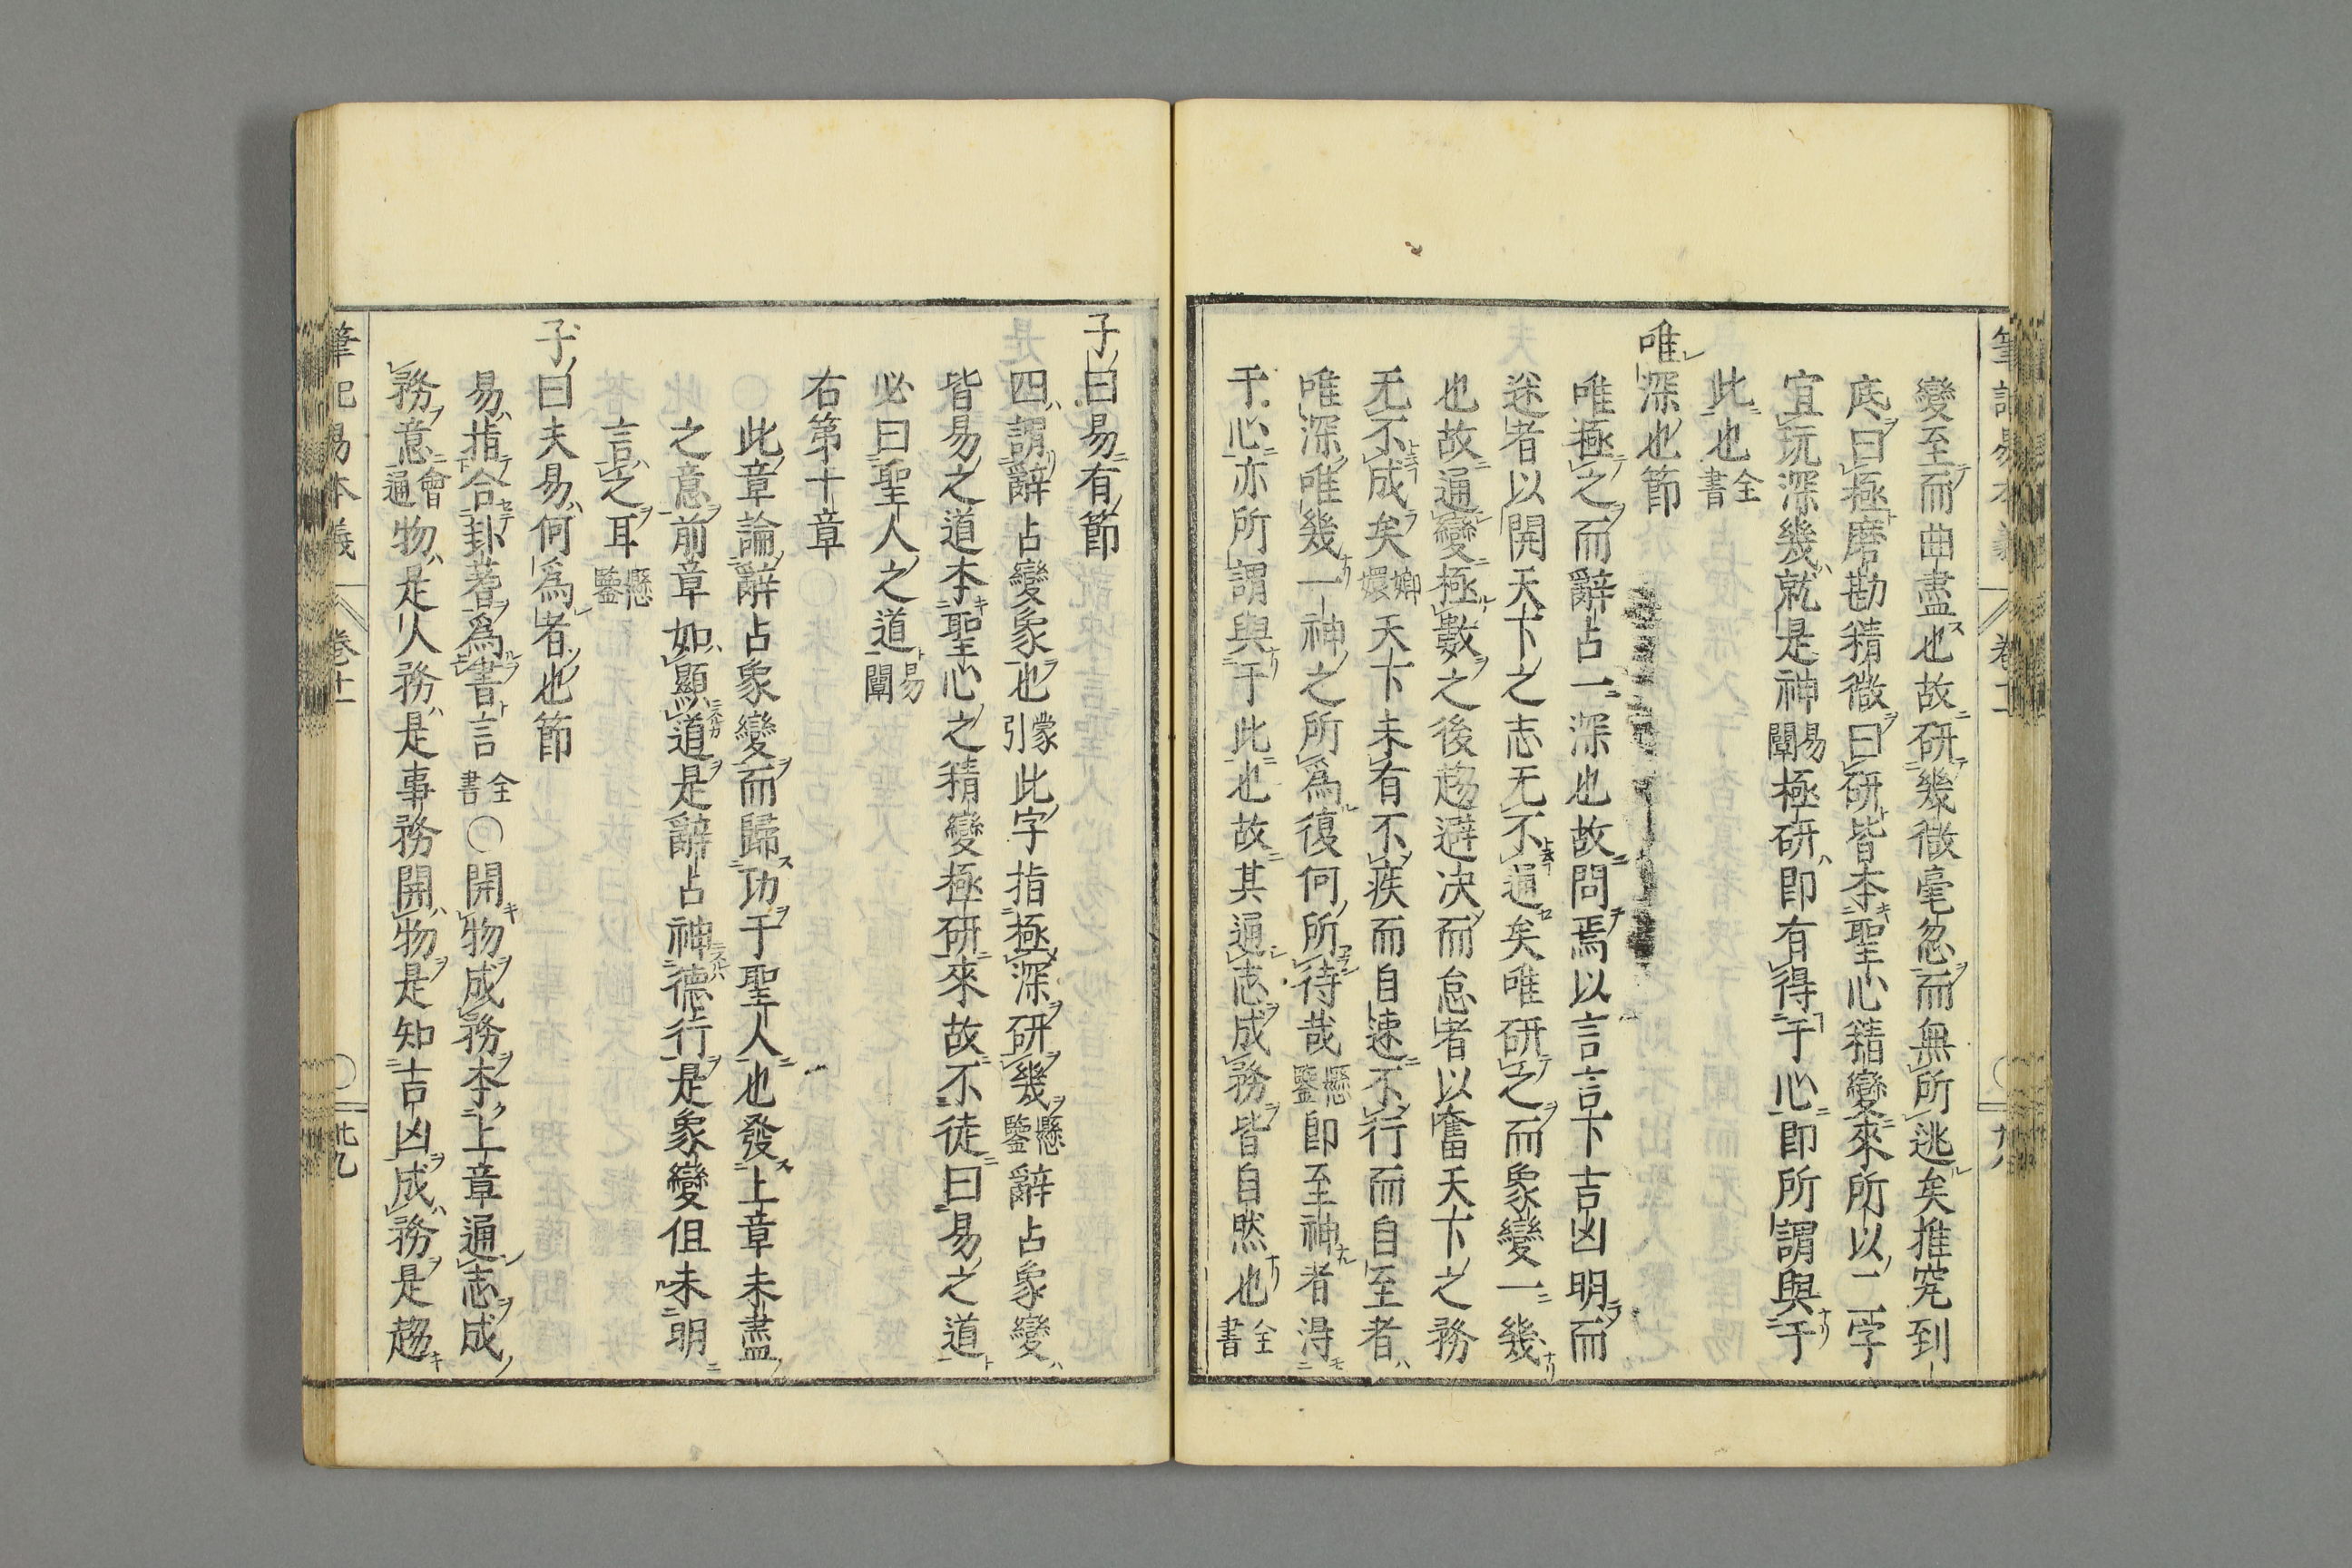 變至而曲盡也故研幾微毫忽而無所逃矣推究到
底曰極磨勘精微曰研皆本聖心精變來所以二字
宜玩深幾就是神易闡極研即有得于心即所謂與于
此也全書
唯深也節
唯極之而辭占一深也故問焉以言言下吉凶明而
迷者以開天下之志无不通矣唯研之而象變一幾
也故通變極數之後趨避决而怠者以奮天下之務
无不成矣嫏嬛天下未有不疾而自速不行而自至者
唯深唯幾一神之所爲復何所待哉懸鑒即至神者得
于心亦所謂與于此也故其通志成務皆自然也全書
子曰易有節
四謂辭占變象也蒙引此字指極深研幾懸鑒辭占象變
皆易之道本聖心之精變極研來故不徒曰易之道
必曰聖人之道易闡
右第十章
此章論辭占象變而歸功于聖人也發上章未盡
之意前章如顯道是辭占神德行是象變但未明
言之耳懸鑒
子曰夫易何爲者也節
易指合卦蓍爲書言全書〇開物成務本上章通志成
務意會通物是人務是事務開物是知吉凶成務是趨
筆記易本義 卷十一 〇 卅九